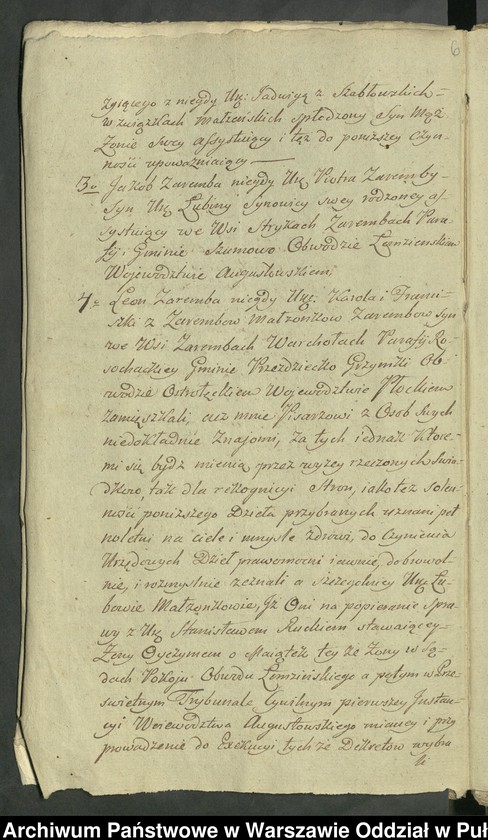 6
żyiącego z niegdy Ur: Jadwigą z Szabłowskich
w związkach Małżeńskich spłodzony Syn Mąż
Żonie swey assystuiący i też do poniższey Czyn-
ności upoważniaiący
3o Jakób Zaremba niegdy Ur Piotra Zaremby
Syn Ur Lubiny Synowicy swey rodzoney as-
systuiący we Wsi Strykach Zarembach Para-
fij i Gminie Szumowo Obwodzie Łomżieńskim
Woiewództwie Augustowskiem;
4o Leon Zaremba niegdy Ur: Karola i Franci-
szki z Zarembow Małżonkow Zarembow Syn
we Wsi Zarembach Warchołach Parafij Ro-
sochackiey Gminie Przeździecko Grzymki Ob-
wodzie Ostrołęckiem Woiewództwie Płockiem
zamięszkali, acz mnie Pisarzowi z Osob swych
niedokładnie Znaiomi, za tych iednak Ktore-
mi się bydz mienią przez wyżey rzeczonych Swia-
dkow, tak dla rekognicyi Stron, iako też solen-
ności poniższego Dzieła przybranych uznani peł-
noletni na ciele i umyśle zdrowi, do czynienia
Urzędowych Dzieł prawomocni iawnie, dobrowol-
nie, i rozmyślnie zeznali a szczegulniey Ur Lu-
bowie Małżonkowie, Iż Oni na popieranie Spra-
wy z Ur Stanisławem Ruskiem stawaiącey
Żony Oyczymem o Maiątek tey że Żony w Są-
dach Pokoju Obwodu Łomżińskiego a potym w Prze-
świetnym Trybunale Cywilnym pierwszey Instan-
cyi Woiewództwa Augustowskiego mianey i przy
prowadzenie do Exekucyi tychże Dekretow wybra
li
Archiwum Państwowe w Warszawie Oddział w Puł